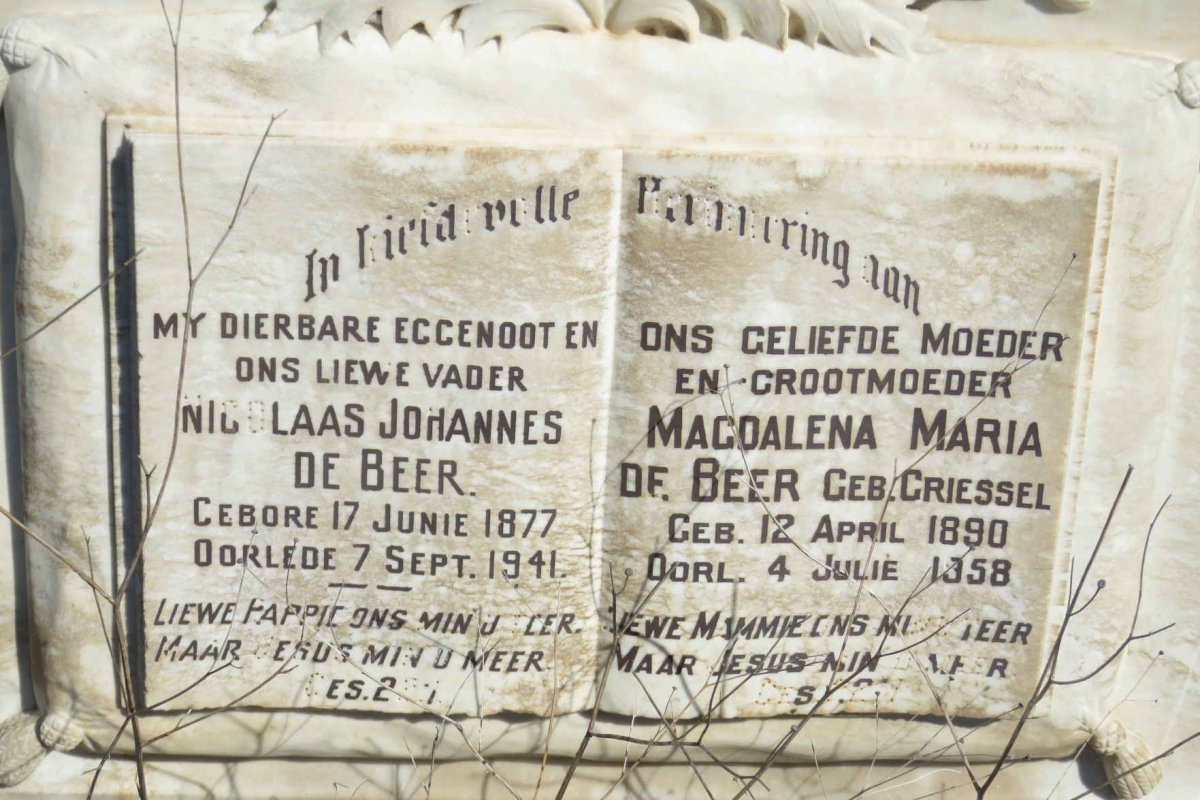 In Liefdevolle Herinnering aan
MY DIERBARE EGGENOOT EN
ONS LIEWE VADER
NICOLAAS JOHANNES
DE BEER.
GEBORE 17 JUNIE 1877
OORLEDE 7 SEPT. 1941.
LIEWE PAPPIE ONS MIN U SEER.
MAAR JESUS MIN U MEER.
GES.2
ONS GELIEFDE MOEDER
EN GROOTMOEDER
MAGDALENA MARIA
DE BEER GEB. GRIESSEL
GEB. 12 APRIL 1890
OORL. 4 JULIE 1958
LIEWE MAMMIE ONS MIN U SEER
MAAR JESUS MIN U MEER